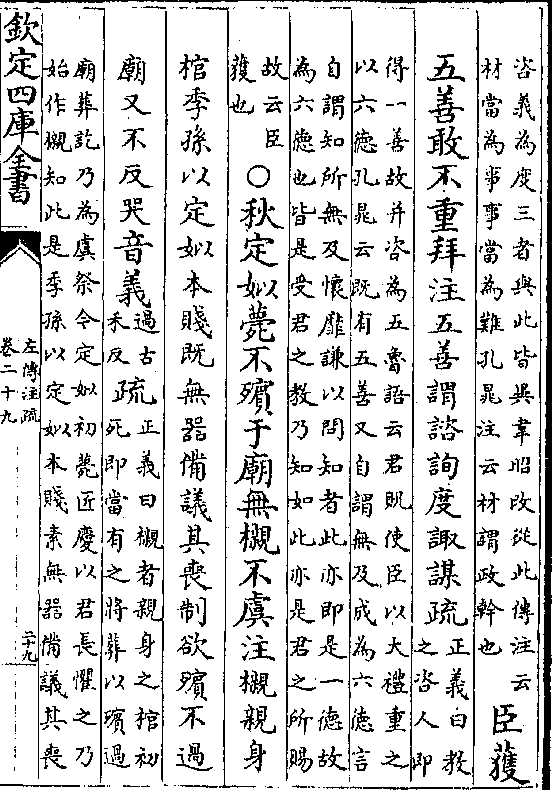 咨義為度三者與此皆異韋昭改從此傳注云
材當為事事當為難孔晁注云材謂政幹也
臣獲
五善敢不重拜注五善謂諮詢度諏謀疏
正義曰教
之咨人即
得一善故并咨為五魯語云君貺使臣以大禮重之
以六德孔晁云既有五善又自謂無及成為六德言
自謂知所無及懷靡謙以問知者此亦即是一德故
為六德也皆是受君之教乃知如此亦是君之所賜
故云臣
獲也
○秋定姒薨不殯于廟無櫬不虞注櫬親身
棺季孫以定姒本賤既無器備議其喪制欲殯不過
廟又不反哭音義
過古
禾反
疏
正義曰櫬者親身之棺初
死即當有之將葬以殯過
廟葬訖乃為虞祭今定姒初薨匠慶以君長懼之乃
始作櫬知此是季孫以定姒本賤素無器備議其喪
欽定四庫全書
左傳注疏
卷二十九
二十九